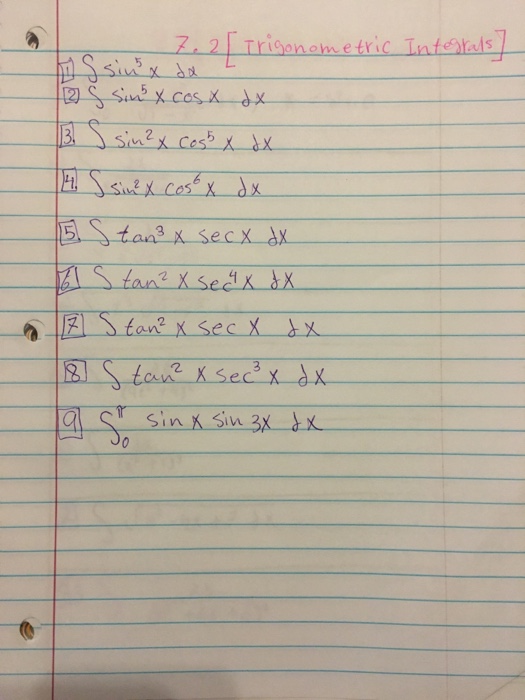 7.2 [Trigonometric Integrals]
1 ∫ sin⁵x dx
2 ∫ sin⁵ x cos x dx
3. ∫ sin²x cos⁵ x dx
4. ∫ sin²x cos⁶ x dx
5. ∫ tan³ x sec x dx
6 ∫ tan² x sec⁴ x dx
7 ∫ tan² x sec x dx
8 ∫ tan² x sec³ x dx
9 ∫₀^π sin x sin 3x dx